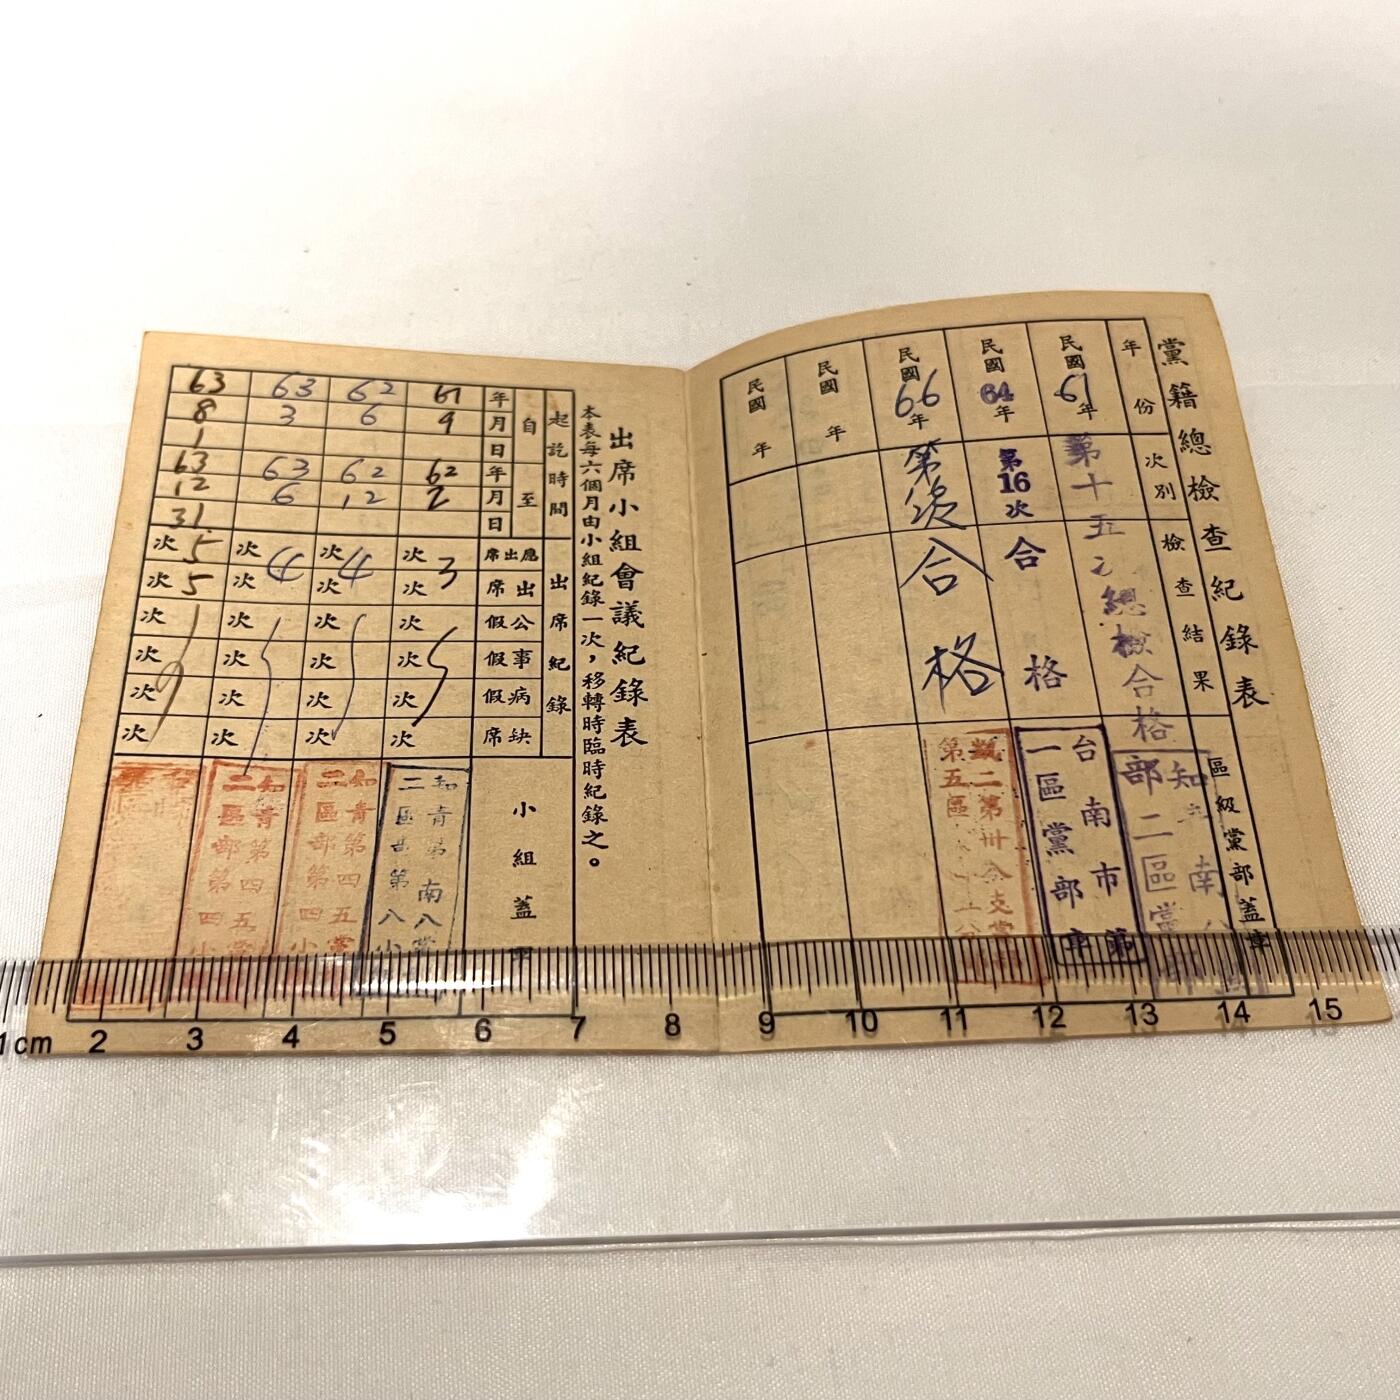 黨籍總檢查紀錄表
年份
次別
檢查結果
區級黨部蓋章
民國61年
第十五次總檢合格
知青
南
部二區黨
民國64年
第16次
合格
台南市第
一區黨部章
民國66年
第
次
合格
第五區
民國 年
民國 年
出席小組會議紀錄表
本表每六個月由小組紀錄一次，移轉時臨時紀錄之。
起訖時間
自
年月日
至
年月日
出席紀錄
應出席
出席
公假
事假
病假
缺席
小組蓋
61
9
62
2
次 3
次
次
次
次
次
知青第南八黨
二區部第八小
62
6
62
12
次 4
次
次
次
次
次
知青第四五黨
二區部第四小
63
3
63
6
次 4
次
次
次
次
次
知青第四五黨
二區部第四小
63
8
1
63
12
31
次 5
次 5
次
次
次
次
1cm 2 3 4 5 6 7 8 9 10 11 12 13 14 15